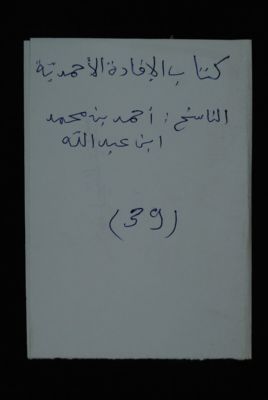 كتاب الإفادة الأحمدية
الناسخ : أحمد بن محمد
ابن عبد الله
(39)